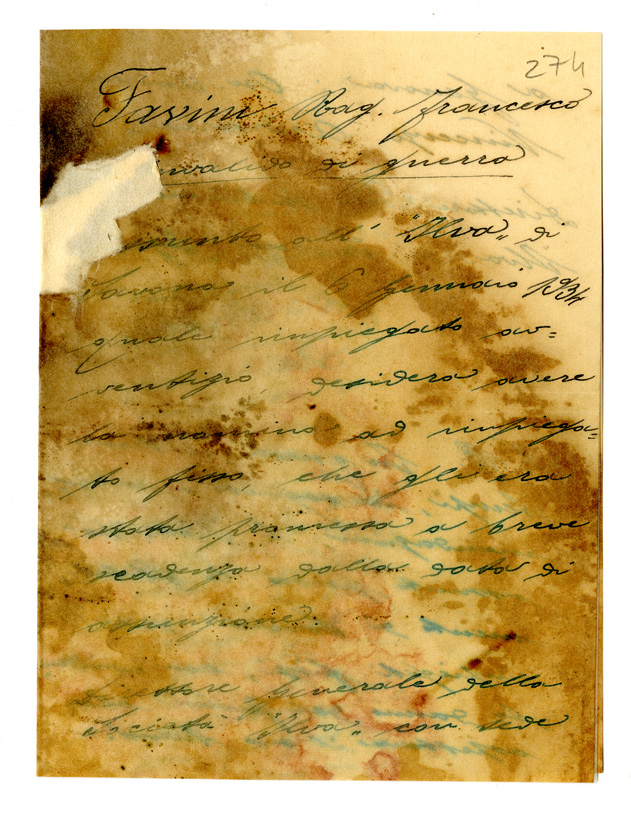 274
Favini Rag. Francesco
invalido di guerra
assunto all' "Ilva" di
Savona il 6 gennaio 1934
quale impiegato av=
ventizio, desidera avere
la nomina ad impiega=
to fisso, che gli era
stata promessa a breve
scadenza dalla data di
assunzione.
Direttore generale della
Società "Ilva" con sede